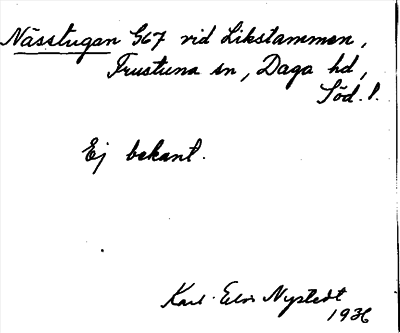 Nässtugan G67 vid Likstammen,
Frustuna sn, Daga hd,
Söd. l.
Ej bekant.
Karl Nystedt
1936